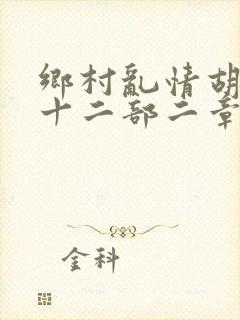 鄉村亂情胡
十二部二章
金科